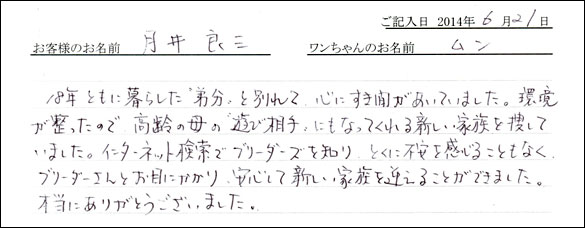 ご記入日 2014年 6月21日
お客様のお名前 月井 良三 ワンちゃんのお名前 ムン
18年ともに暮らした"弟分"と別れて、心にすき間があいていました。環境
が整ったので、高齢の母の"遊び相手"にもなってくれる新しい家族を捜して
いました。インターネット検索でブリーダーズを知り、とくに不安を感じることもなく、
ブリーダーさんとお目にかかり、安心して新しい家族を迎えることができました。
本当にありがとうございました。